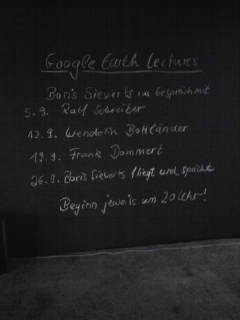 Google Earth Lectures
Boris Sieverts im Gespräch mit
5.9. Ralf Schreiber
12.9. Wendelin Bottländer
19.9. Frank Dommert
26.9. Boris Sieverts fliegt und spricht
Beginn jeweils um 20 Uhr!